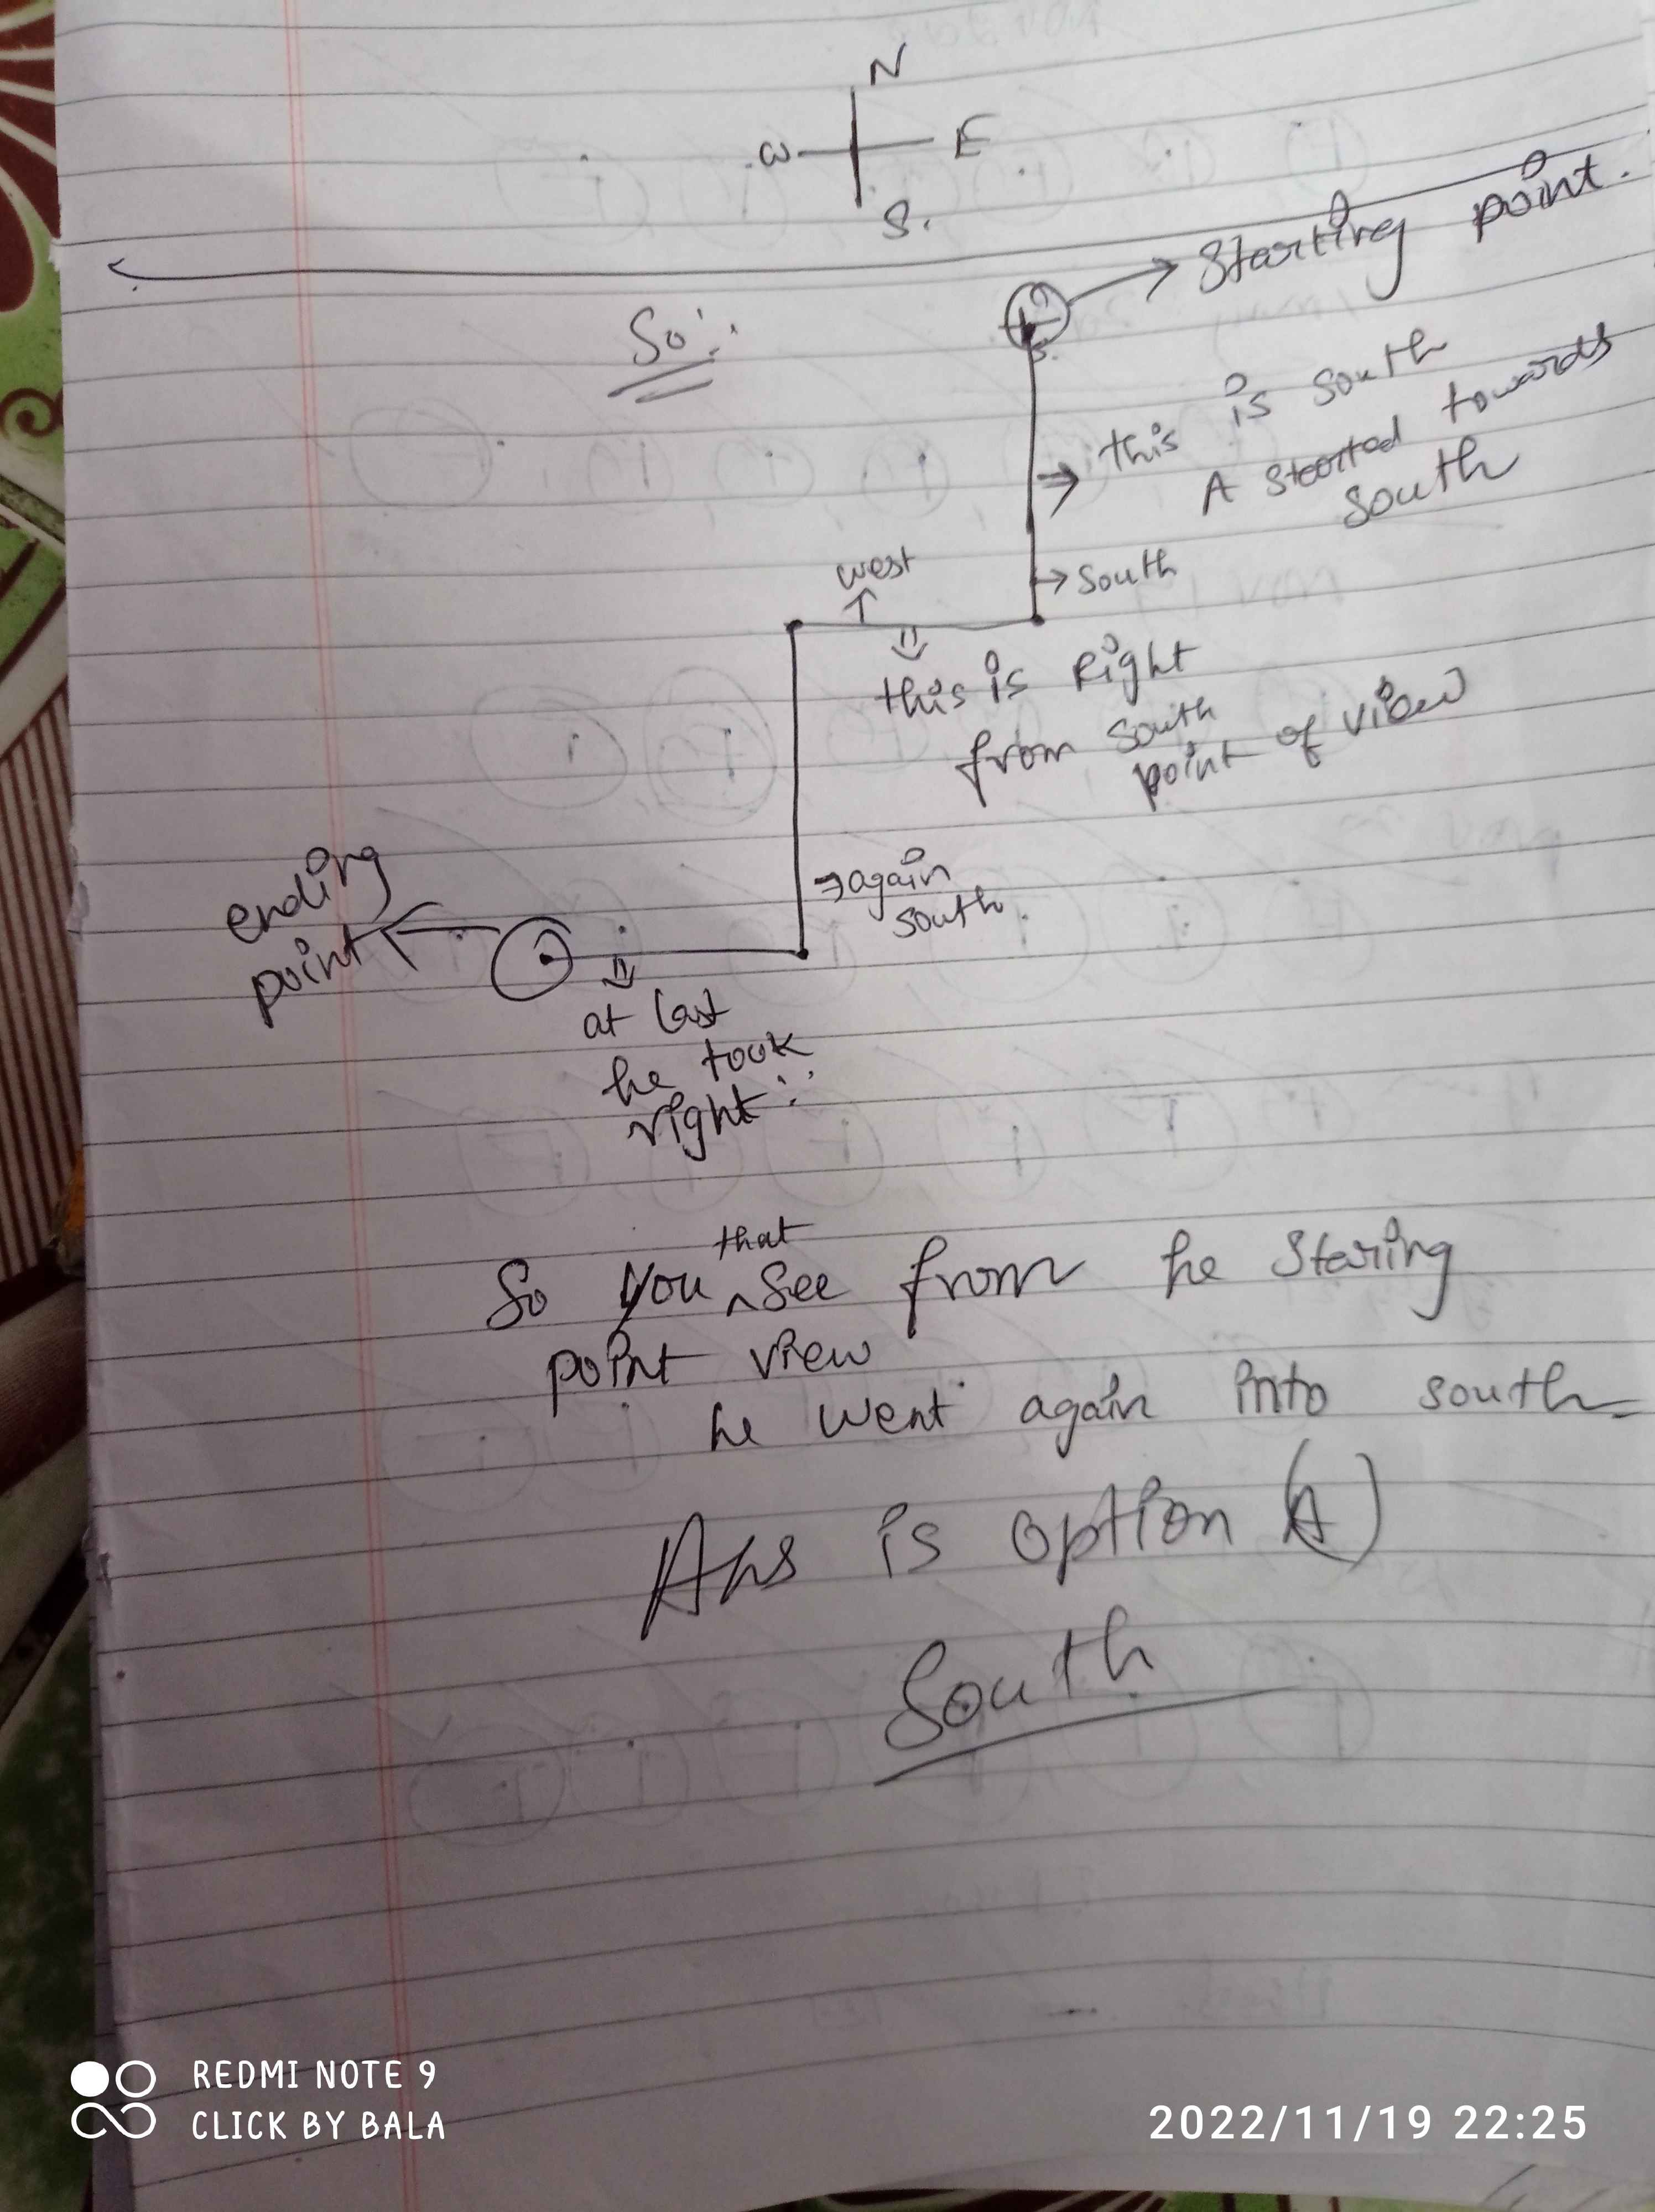 N
W E
S.
Starting point.
So:
S.
this is south
A started towards
south
west
South
this is Right
from south
point of view
ending
point
again
south
at last
he took
right
that
So you see from he Staring
point view
he went again into south
Ans is option (A)
South
REDMI NOTE 9
CLICK BY BALA
2022/11/19 22:25